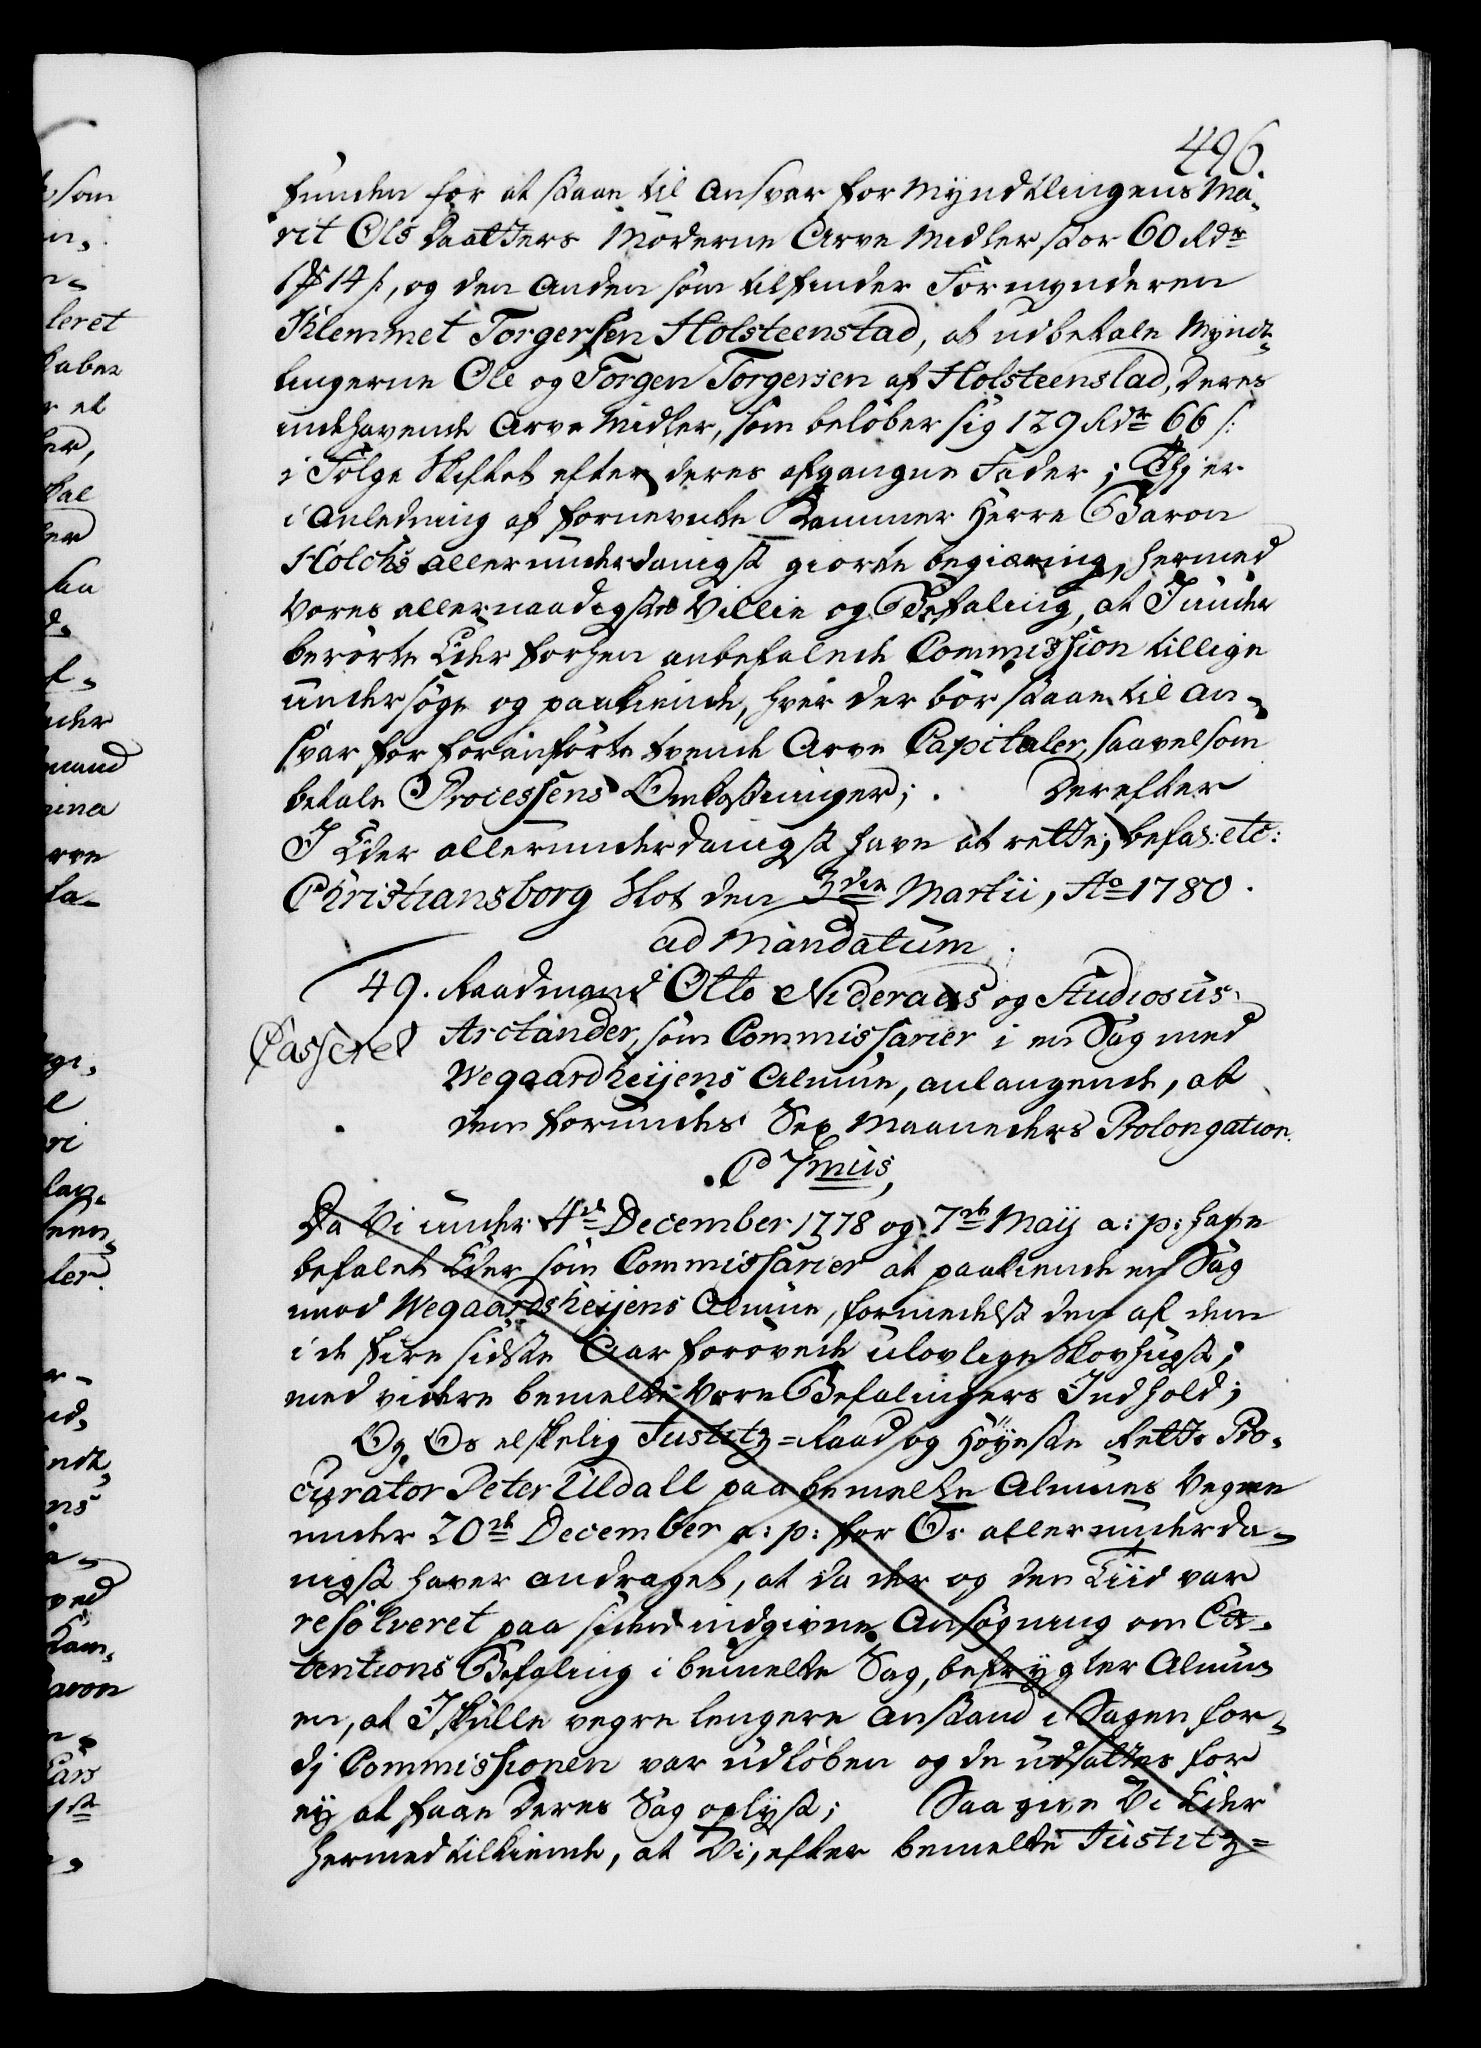 496.
funden for at staae til Ansvar for Myndtlingens Ma-
rit Ols Daatters Møderne Arve Midler stor 60 Rdr
14 s, og den Anden som tilfinder Formynderen
Klemmet Torgersen Holsteenstad, at udbetale Mynt-
lingerne Ole og Torgen Torgersen af Holsteenstad, deres
indehavende Arve Midler, som beløber sig 129 Rdr 66 s:
i Følge Skiftet efter deres afgangne Fader; Thj er
i Anledning af fornevnte Kammer Herre Baron
Holchs allerunderdanigst giorte begiæring, hermed
Vores allernaadigste Villie og Befaling, at I under
berørte Eder forhen anbefalede Commission tillige
undersøge og paakiende, hvor der bør staae til An-
svar for foranførte tvende Arve Capitaler, saavelsom
betale Processens Omkostninger; Derefter
I Eder allerunderdanigst have at rette, befal: etc:
Christiansborg Slot den 3die Martii, Ao 1780.
ad Mandatum
49. Raadmand Otto Nideraas og Studiosus
Passeret
Arctander, som Commissarier i en Sag med
Wegaardheijens Almue, anlangende, at
dem forundes Sex Maaneders Prolongation.
C 7mus,
Da Vi under 4de December 1778 og 7de Maij a: p: have
befalet Eder som Commissarier at paakiende en Sag
mod Wegaardsheijens Almue, formedelst den af dem
i de fire sidste Aar forøvede ulovlige Skovhugst;
med videre bemelte Vore Befalingers Indhold;
Og Os elskelig Justitz=Raad og Høyeste Retts Pro-
curator Peter Uldall paa bemelte Almues Vegne
under 20de December a: p: for Os allerunderda-
nigst haver andraget, at da der og den Tiid var
resolveret paa sidst indgivne Ansøgning om Ex-
tentions Befaling i bemelte Sag, befrygter Almu-
en, at I skulle vegre lengere Anstand i Sagen for-
dj Commissionen var udløben og de udsattes for
ej at faae deres Sag oplyst; Saa give Vi Eder
hermed tilkiende, at Vi, efter bemelte Justitz=